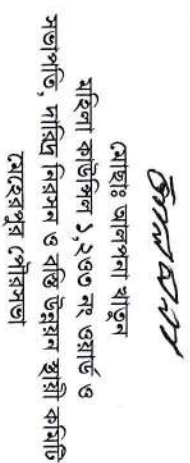 আলপনা
মোছাঃ আলপনা খাতুন
মহিলা কাউন্সিলর ১,২ও৩ নং ওয়ার্ড ও
সভাপতি, দারিদ্র নিরসন ও বস্তি উন্নয়ন স্থায়ী কমিটি
মেহেরপুর পৌরসভা